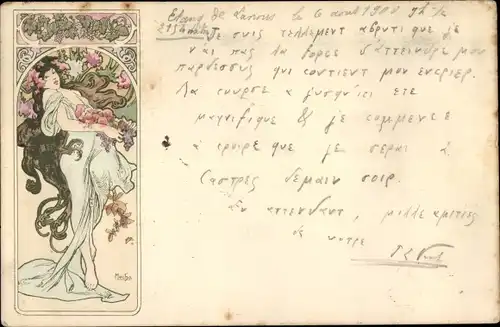 Etang de Lanous le 6 aout 1900 9h ½
2154 mètres Je suis tellement abruti que je
n'ai pas la force d'atteindre mon
pardessus qui contient mon encrier.
La course a jusqu'ici été
magnifique & je commence
à croire que je serai à
Castres demain soir.
En attendant, mille amitiés
de votre
Mucha